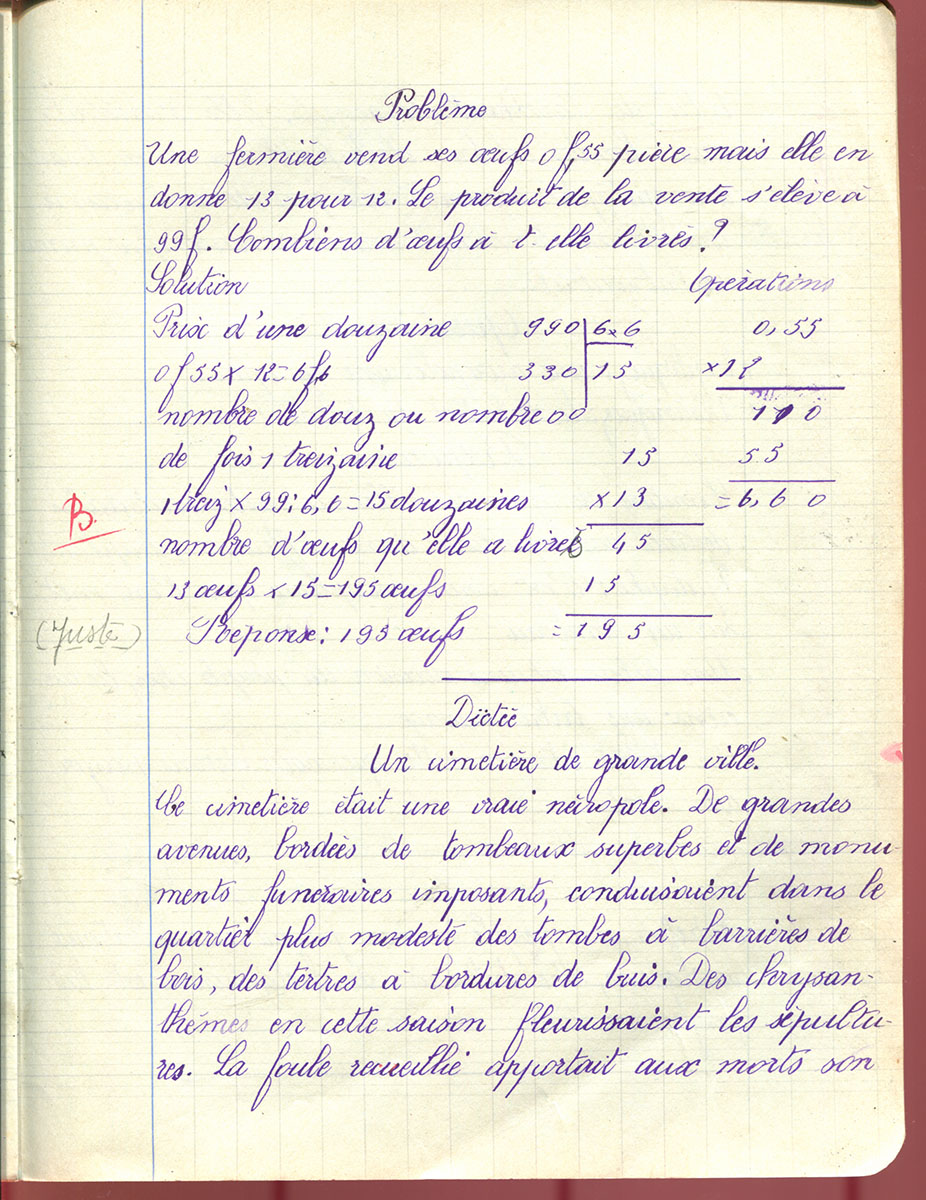 Problème
Une fermière vend ses œufs 0f,55 pièce mais elle en
donne 13 pour 12. Le produit de la vente s'elève à
99f. Combiens d'œufs à t. elle livrés ?
Solution
Opérations
Prix d'une douzaine
990 6,6
0,55
0f55 x 12=6f,6
330 15
x12
nombre de douz ou nombre
00
110
de fois 1 treizaine
15
55
1treiz x 99:6,6=15douzaines
x13
=6,60
B.
nombre d'œufs qu'elle a livrés
45
13 œufs x 15=195 œufs
15
(Juste)
Réponse: 195 œufs
=195
Dictée
Un cimetière de grande ville.
Ce cimetière était une vraie nécropole. De grandes
avenues, bordées de tombeaux superbes et de monu-
ments funeraires imposants, conduisaient dans le
quartier plus modeste des tombes à barrières de
bois, des tertres à bordures de buis. Des chrysan-
thèmes en cette saison fleurissaient les sépultu-
res. La foule recueillie apportait aux morts son